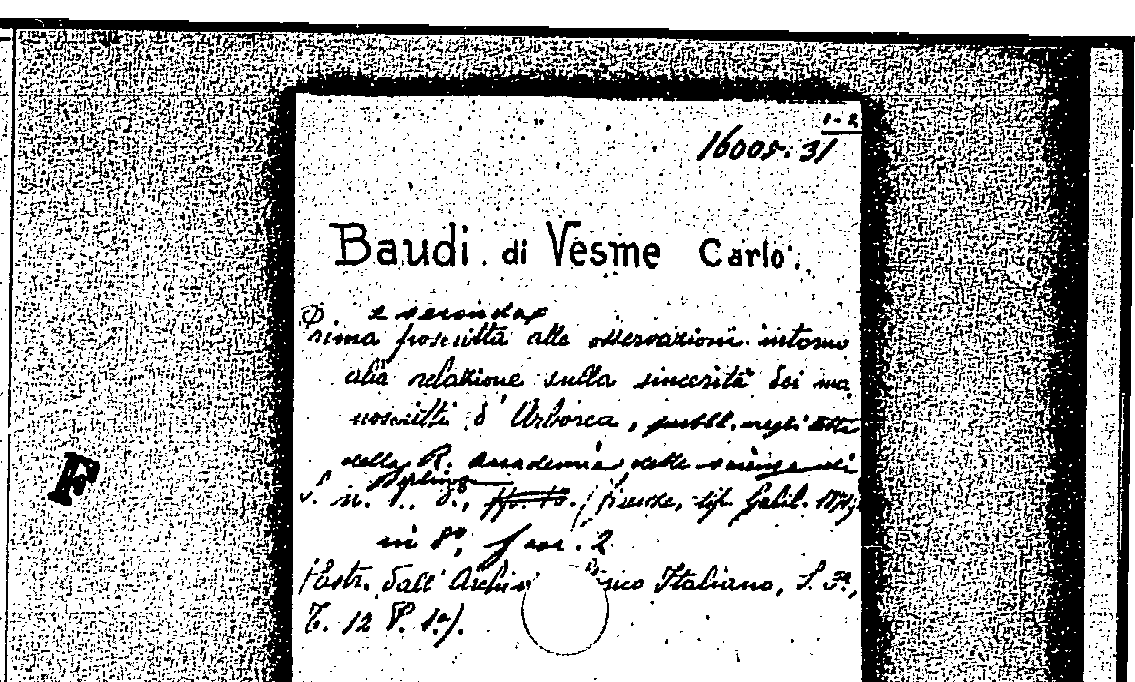 1-2
16005.31
Baudi di Vesme Carlo.
e seconda
Prima poscritta alle osservazioni intorno
alla relazione sulla sincerità dei ma
noscritti d'Arborea, pubbl. negli Atti
della R. Accademia delle scienze di
Berlino
S. n. t., (Firenze, tip. Galil.
in 8°, fasc. 2
(Estr. dall'Archivio Storico Italiano, S. 3ª,
T. 12 P. 1ª).
F